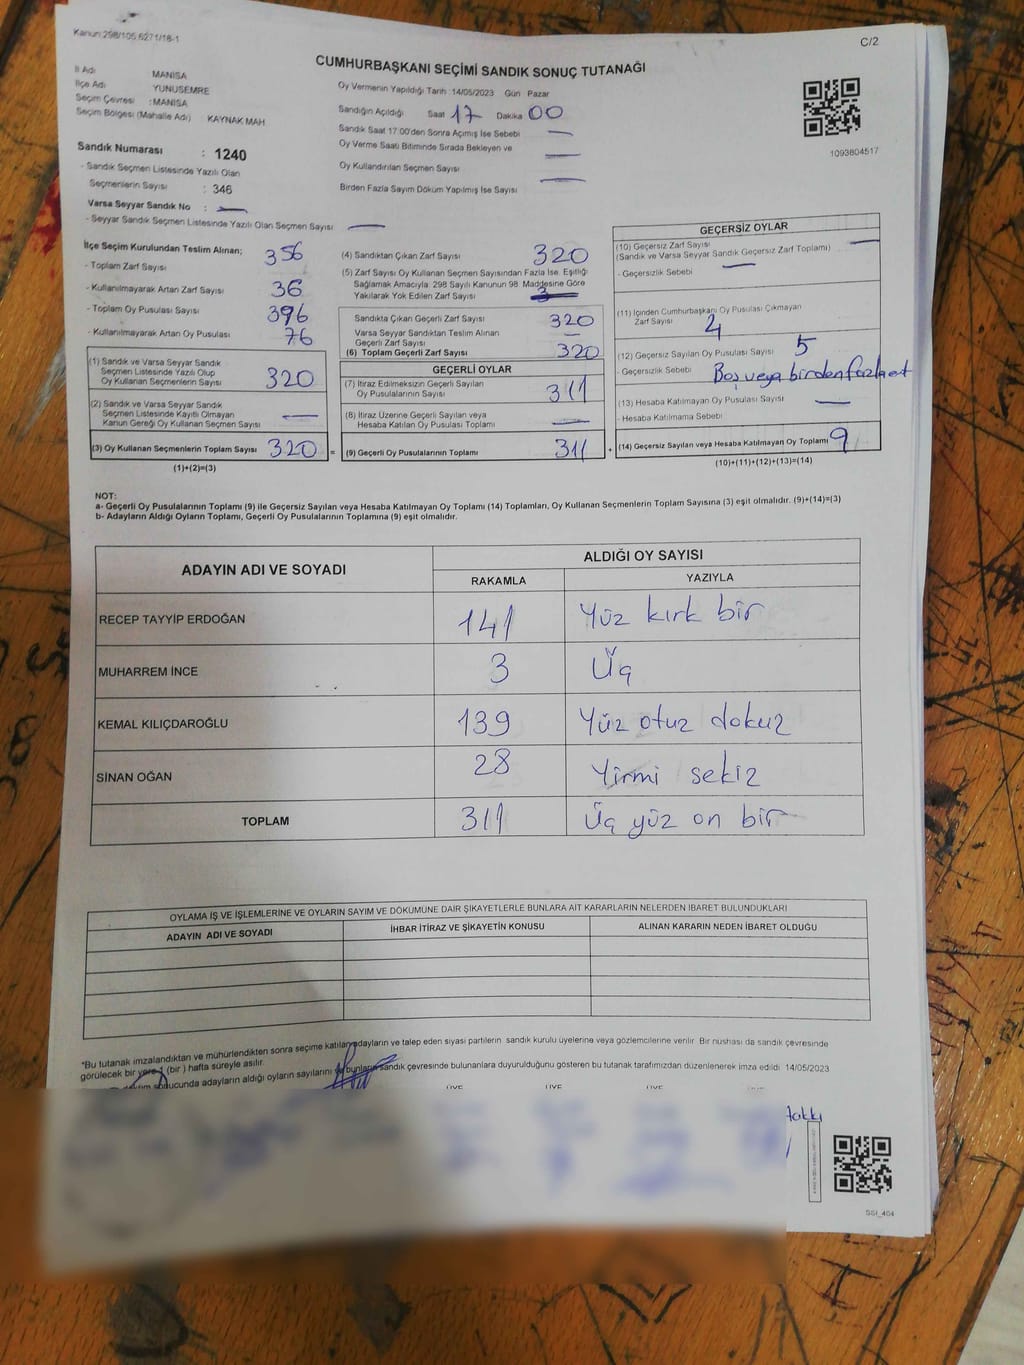 Kanun:298/105.6271/18-1
C/2
CUMHURBAŞKANI SEÇİMİ SANDIK SONUÇ TUTANAĞI
İl Adı MANİSA
İlçe Adı YUNUSEMRE
Seçim Çevresi : MANİSA
Seçim Bölgesi (Mahalle Adı) KAYNAK MAH
Oy Vermenin Yapıldığı Tarih :14/05/2023 Gün Pazar
Sandığın Açıldığı Saat 17 Dakika 00
Sandık Saat 17:00'den Sonra Açımış İse Sebebi —
Oy Verme Saati Bitiminde Sırada Bekleyen ve
Oy Kullandırılan Seçmen Sayısı —
Birden Fazla Sayım Döküm Yapılmış İse Sayısı —
1093804517
Sandık Numarası : 1240
- Sandık Seçmen Listesinde Yazılı Olan
Seçmenlerin Sayısı : 346
Varsa Seyyar Sandık No : —
- Seyyar Sandık Seçmen Listesinde Yazılı Olan Seçmen Sayısı —
İlçe Seçim Kurulundan Teslim Alınan;
- Toplam Zarf Sayısı 356
- Kullanılmayarak Artan Zarf Sayısı 36
- Toplam Oy Pusulası Sayısı 396
- Kullanılmayarak Artan Oy Pusulası 76
(1) Sandık ve Varsa Seyyar Sandık
Seçmen Listesinde Yazılı Olup
Oy Kullanan Seçmenlerin Sayısı 320
(2) Sandık ve Varsa Seyyar Sandık
Seçmen Listesinde Kayıtlı Olmayan
Kanun Gereği Oy Kullanan Seçmen Sayısı —
(3) Oy Kullanan Seçmenlerin Toplam Sayısı 320 =
(1)+(2)=(3)
(4) Sandıktan Çıkan Zarf Sayısı 320
(5) Zarf Sayısı Oy Kullanan Seçmen Sayısından Fazla İse, Eşitliği
Sağlamak Amacıyla; 298 Sayılı Kanunun 98. Maddesine Göre
Yakılarak Yok Edilen Zarf Sayısı
Sandıkta Çıkan Geçerli Zarf Sayısı 320
Varsa Seyyar Sandıktan Teslim Alınan
Geçerli Zarf Sayısı —
(6) Toplam Geçerli Zarf Sayısı 320
GEÇERLİ OYLAR
(7) İtiraz Edilmeksizin Geçerli Sayılan
Oy Pusulası Sayısı 311
(8) İtiraz Üzerine Geçerli Sayılan veya
Hesaba Katılan Oy Pusulası Toplamı —
(9) Geçerli Oy Pusulalarının Toplamı 311 +
GEÇERSİZ OYLAR
(10) Geçersiz Zarf Sayısı —
(Sandık ve Varsa Seyyar Sandık Geçersiz Zarf Toplamı)
- Geçersizlik Sebebi —
(11) İçinden Cumhurbaşkanı Oy Pusulası Çıkmayan
Zarf Sayısı 4
(12) Geçersiz Sayılan Oy Pusulası Sayısı 5
- Geçersizlik Sebebi Boş veya birden fazla et
(13) Hesaba Katılmayan Oy Pusulası Sayısı —
- Hesaba Katılmama Sebebi
(14) Geçersiz Sayılan veya Hesaba Katılmayan Oy Toplamı 9
(10)+(11)+(12)+(13)=(14)
NOT:
a- Geçerli Oy Pusulalarının Toplamı (9) ile Geçersiz Sayılan veya Hesaba Katılmayan Oy Toplamı (14) Toplamları, Oy Kullanan Seçmenlerin Toplam Sayısına (3) eşit olmalıdır. (9)+(14)=(3)
b- Adayların Aldığı Oyların Toplamı, Geçerli Oy Pusulalarının Toplamına (9) eşit olmalıdır.
ADAYIN ADI VE SOYADI ALDIĞI OY SAYISI
RAKAMLA YAZIYLA
RECEP TAYYİP ERDOĞAN 141 Yüz kırk bir
MUHARREM İNCE 3 Üç
KEMAL KILIÇDAROĞLU 139 Yüz otuz dokuz
SİNAN OĞAN 28 Yirmi sekiz
TOPLAM 311 Üç yüz on bir
OYLAMA İŞ VE İŞLEMLERİNE VE OYLARIN SAYIM VE DÖKÜMÜNE DAİR ŞİKAYETLERLE BUNLARA AİT KARARLARIN NELERDEN İBARET BULUNDUKLARI
ADAYIN ADI VE SOYADI İHBAR İTİRAZ VE ŞİKAYETİN KONUSU ALINAN KARARIN NEDEN İBARET OLDUĞU
*Bu tutanak imzalandıktan ve mühürlendikten sonra seçime katılan adayların ve talep eden siyasi partilerin sandık kurulu üyelerine veya gözlemcilerine verilir. Bir nüshası da sandık çevresinde
görülecek bir yere 1 (bir) hafta süreyle asılır.
sonucunda adayların aldığı oyların sayılarını ve bunların sandık çevresinde bulunanlara duyurulduğunu gösteren bu tutanak tarafımızdan düzenlenerek imza edildi. 14/05/2023
ÜYE ÜYE ÜYE ÜYE
SSI_464